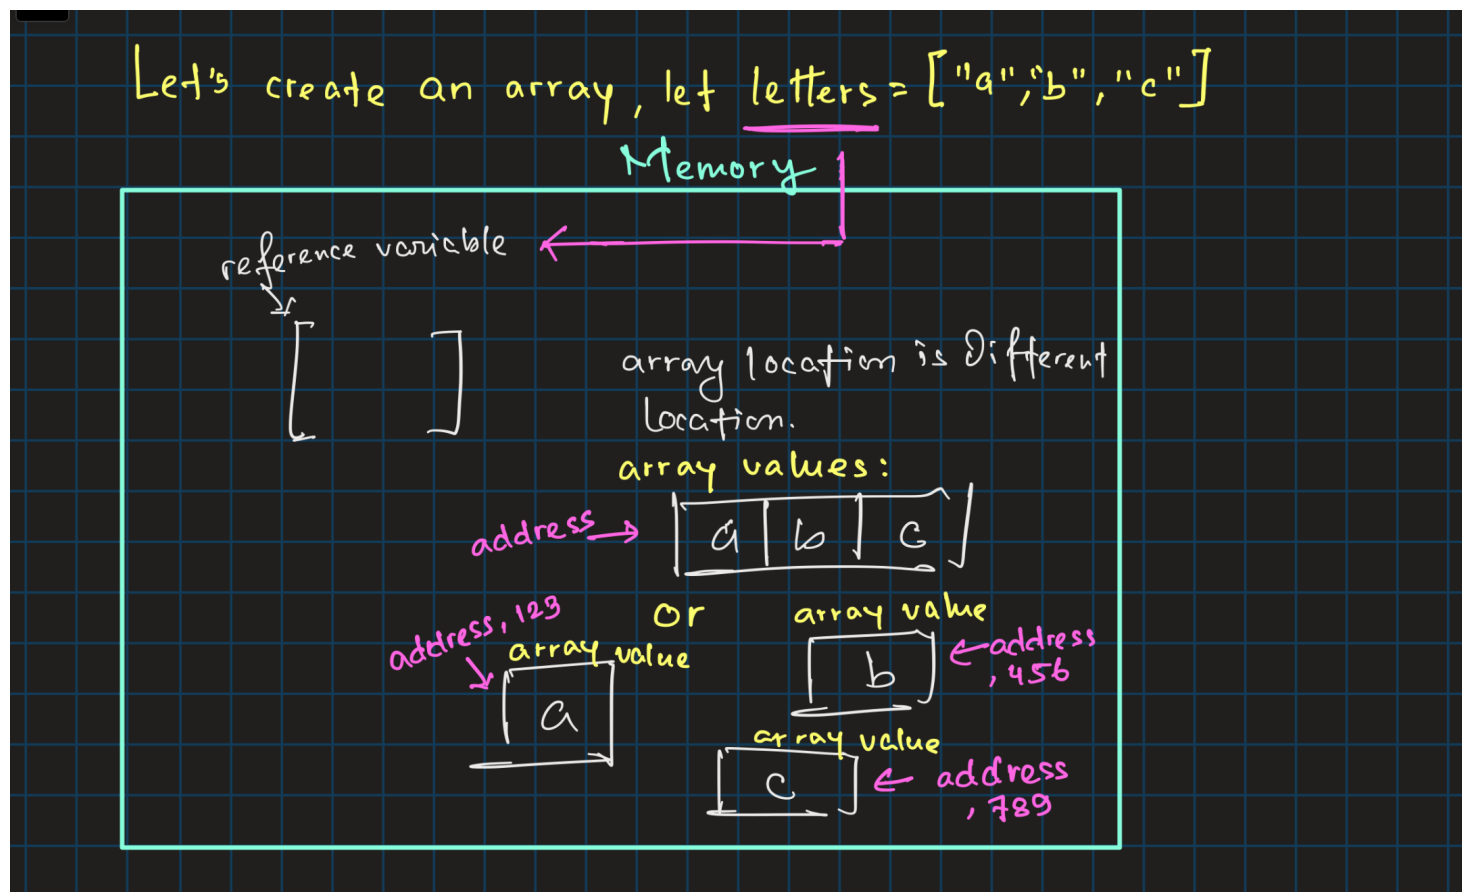 Let's create an array, let letters = ["a","b","c"]
Memory
reference variable
array location is Different
location.
array values:
address
a b c
or
address, 123
array value
a
array value
b
address
, 456
array value
c
address
, 789